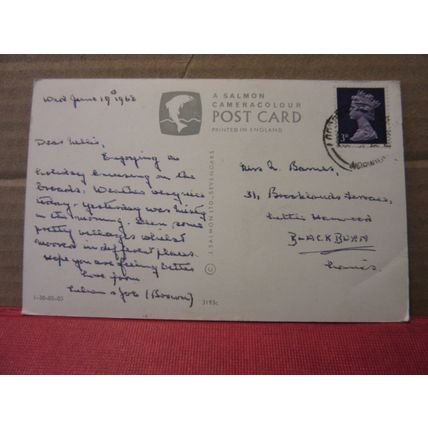 Wed June 19th 1968
A SALMON
CAMERACOLOUR
POST CARD
PRINTED IN ENGLAND
Dear Nellie,
Enjoying a
holiday cruising on the
Broads. Weather very nice
today - yesterday was misty
in the morning. Seen some
pretty villages whilst
moored in different places.
Hope you are feeling better
Love from
Lilian & Joe (Brown)
© J. SALMON LTD., SEVENOAKS
1-30-03-03
3193c
3D
Miss N. Barnes,
31, Brooklands Terrace,
Little Harwood
BLACKBURN
Lancs.